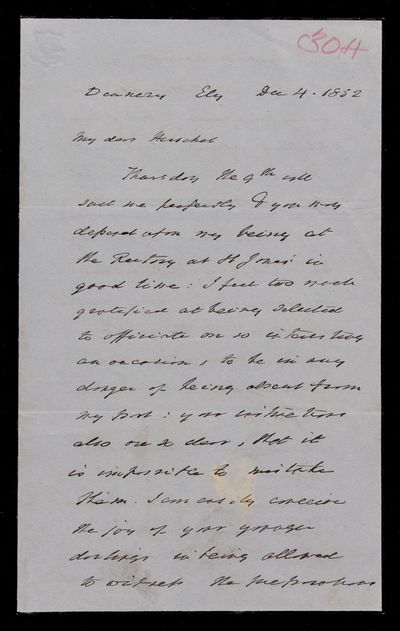 304
Deanery Ely Dec 4. 1852
My dear Herschel
Thursday the 9th will
suit me perfectly & you may
depend upon my being at
the Rectory at St James in
good time: I feel too much
gratified at being selected
to officiate on so interesting
an occasion, to be in any
danger of being absent from
my post: your instructions
also are so clear, that it
is impossible to mistake
them. I can easily conceive
the joy of your younger
darlings in being allowed
to witness the